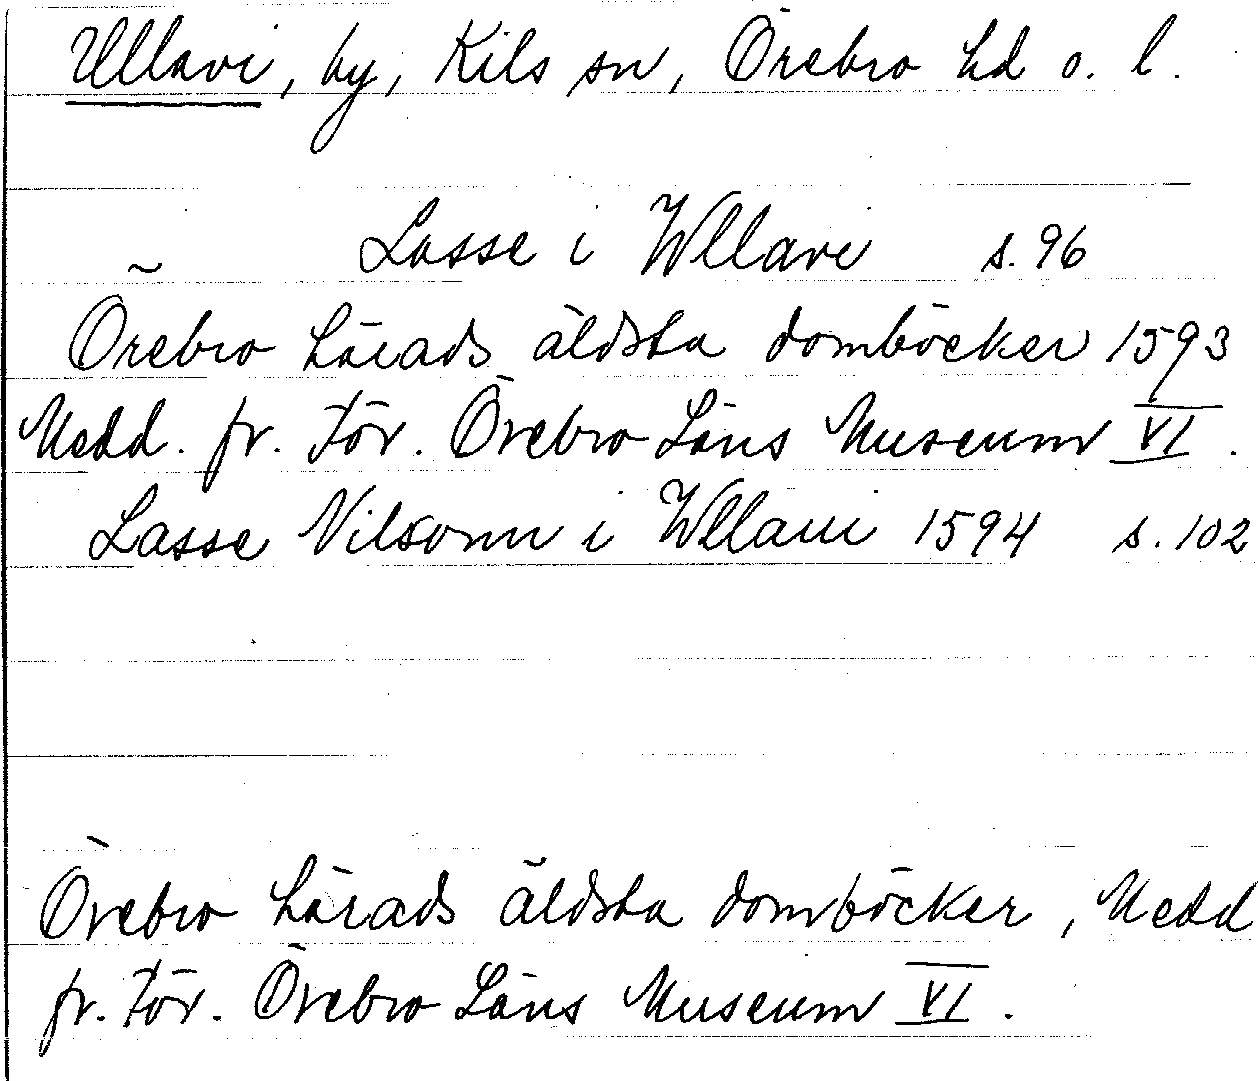 Ullavi, by, Kils sn, Örebro hd o. l.
Lasse i Wllavi s. 96
Örebro härads äldsta domböcker 1593
Medd. fr. För. Örebro Läns Museum VI.
Lasse Nilsonn i Wllaui 1594 s. 102
Örebro härads äldsta domböcker, Medd
fr. För. Örebro Läns Museum VI.